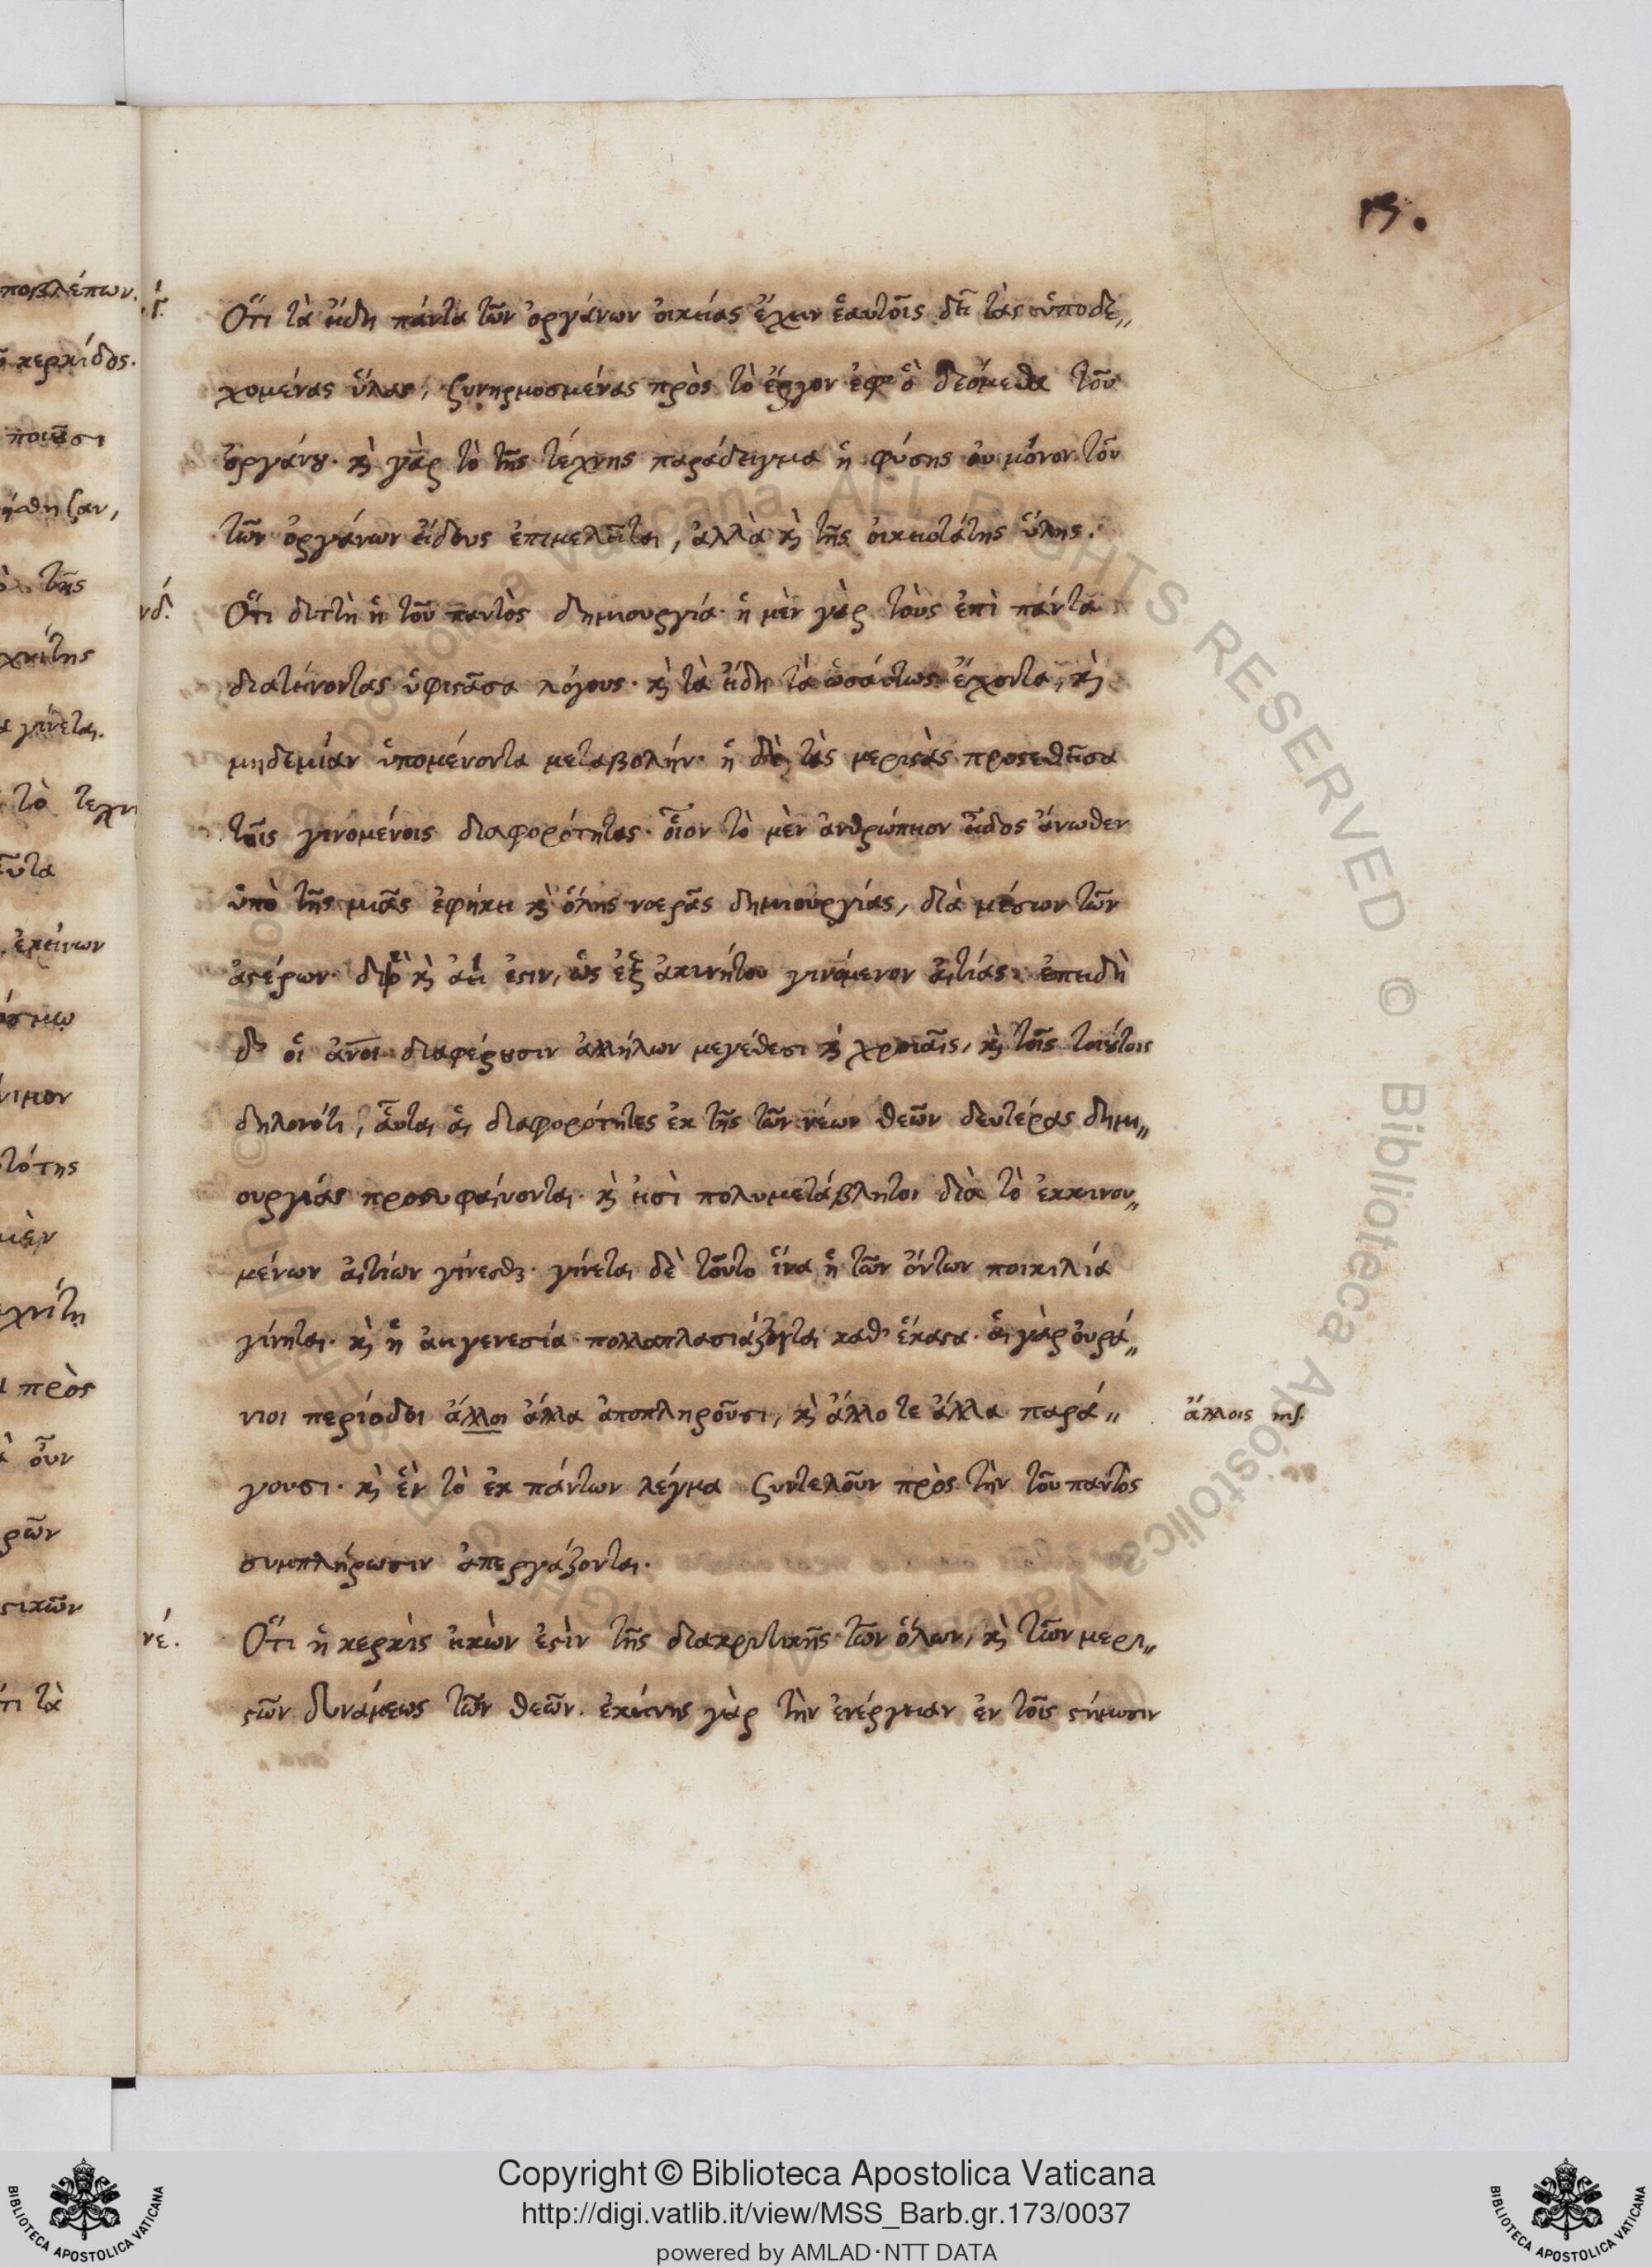 15.
Ὅτι τὰ εἴδη πάντα τῶν ὀργάνων οἰκείας ἔχειν ἑαυτοῖς δεῖ τὰς ὑποδε„
χομένας ὕλας, ξυνηρμοσμένας πρὸς τὸ ἔργον ἐφ' ὃ δεόμεθα τοῦ
ὀργάνου. καὶ γὰρ τὸ τῆς τέχνης παράδειγμα ἡ φύσης οὐ μόνον τοῦ
τῶν ὀργάνων εἴδους ἐπιμελεῖται, ἀλλὰ καὶ τῆς οἰκειοτάτης ὕλης.
νδ. Ὅτι διττὴ ἡ τοῦ παντὸς δημιουργία· ἡ μὲν γὰρ τοὺς ἐπὶ πάντα
διατείνοντας ὑφιστᾶσα λόγους· καὶ τὰ εἴδη τὰ ὡσαύτως ἔχοντα, καὶ
μηδεμίαν ὑπομένοντα μεταβολήν· ἡ δὲ τὰς μεριστὰς προσευθεῖσα
τοῖς γινομένοις διαφορότητας· οἷον τὸ μὲν ἀνθρώπειον εἶδος ἄνωθεν
ὑπὸ τῆς μιᾶς ἐφήκει καὶ ὅλης νοερᾶς δημιουργίας, διὰ μέσων τῶν
ἀστέρων· διὸ καὶ ἀεί ἐστιν, ὡς ἐξ ἀκινήτου γινόμενον αἰτίας· ἐπειδὴ
δὲ οἱ ἄνοι διαφέρουσιν ἀλλήλων μεγέθεσι καὶ χροιαῖς, καὶ τοῖς τοιούτοις
δηλονότι, αὗται αἱ διαφορότητες ἐκ τῆς τῶν νέων θεῶν δευτέρας δημι„
ουργίας προσυφαίνονται· καὶ εἰσὶ πολυμετάβλητοι διὰ τὸ ἐκ κινου„
μένων αἰτίων γίνεσθαι· γίνεται δὲ τοῦτο ἵνα ἡ τῶν ὄντων ποικιλία
γίνηται· καὶ ἡ ἀειγενεσία πολλαπλασιάζηται καθ' ἕκαστα· αἱ γὰρ οὐρά„
νιοι περίοδοι ἄλλοι ἄλλα ἀποπληροῦσι, καὶ ἄλλο τε ἄλλα παρά„
ἄλλοις ms.
γουσι· καὶ ἓν τὸ ἐκ πάντων λέγμα ξυντελοῦν πρὸς τὴν τοῦ παντὸς
συμπλήρωσιν ἀπεργάζονται.
νε. Ὅτι ἡ κερκὶς εἰκών ἐστὶν τῆς διακριτικῆς τῶν ὅλων, καὶ τῶν μερι„
στῶν δυνάμεως τῶν θεῶν. ἐκείνης γὰρ τὴν ἐνέργειαν ἐν τοῖς στήμωσιν
Copyright © Biblioteca Apostolica Vaticana
http://digi.vatlib.it/view/MSS_Barb.gr.173/0037
powered by AMLAD·NTT DATA